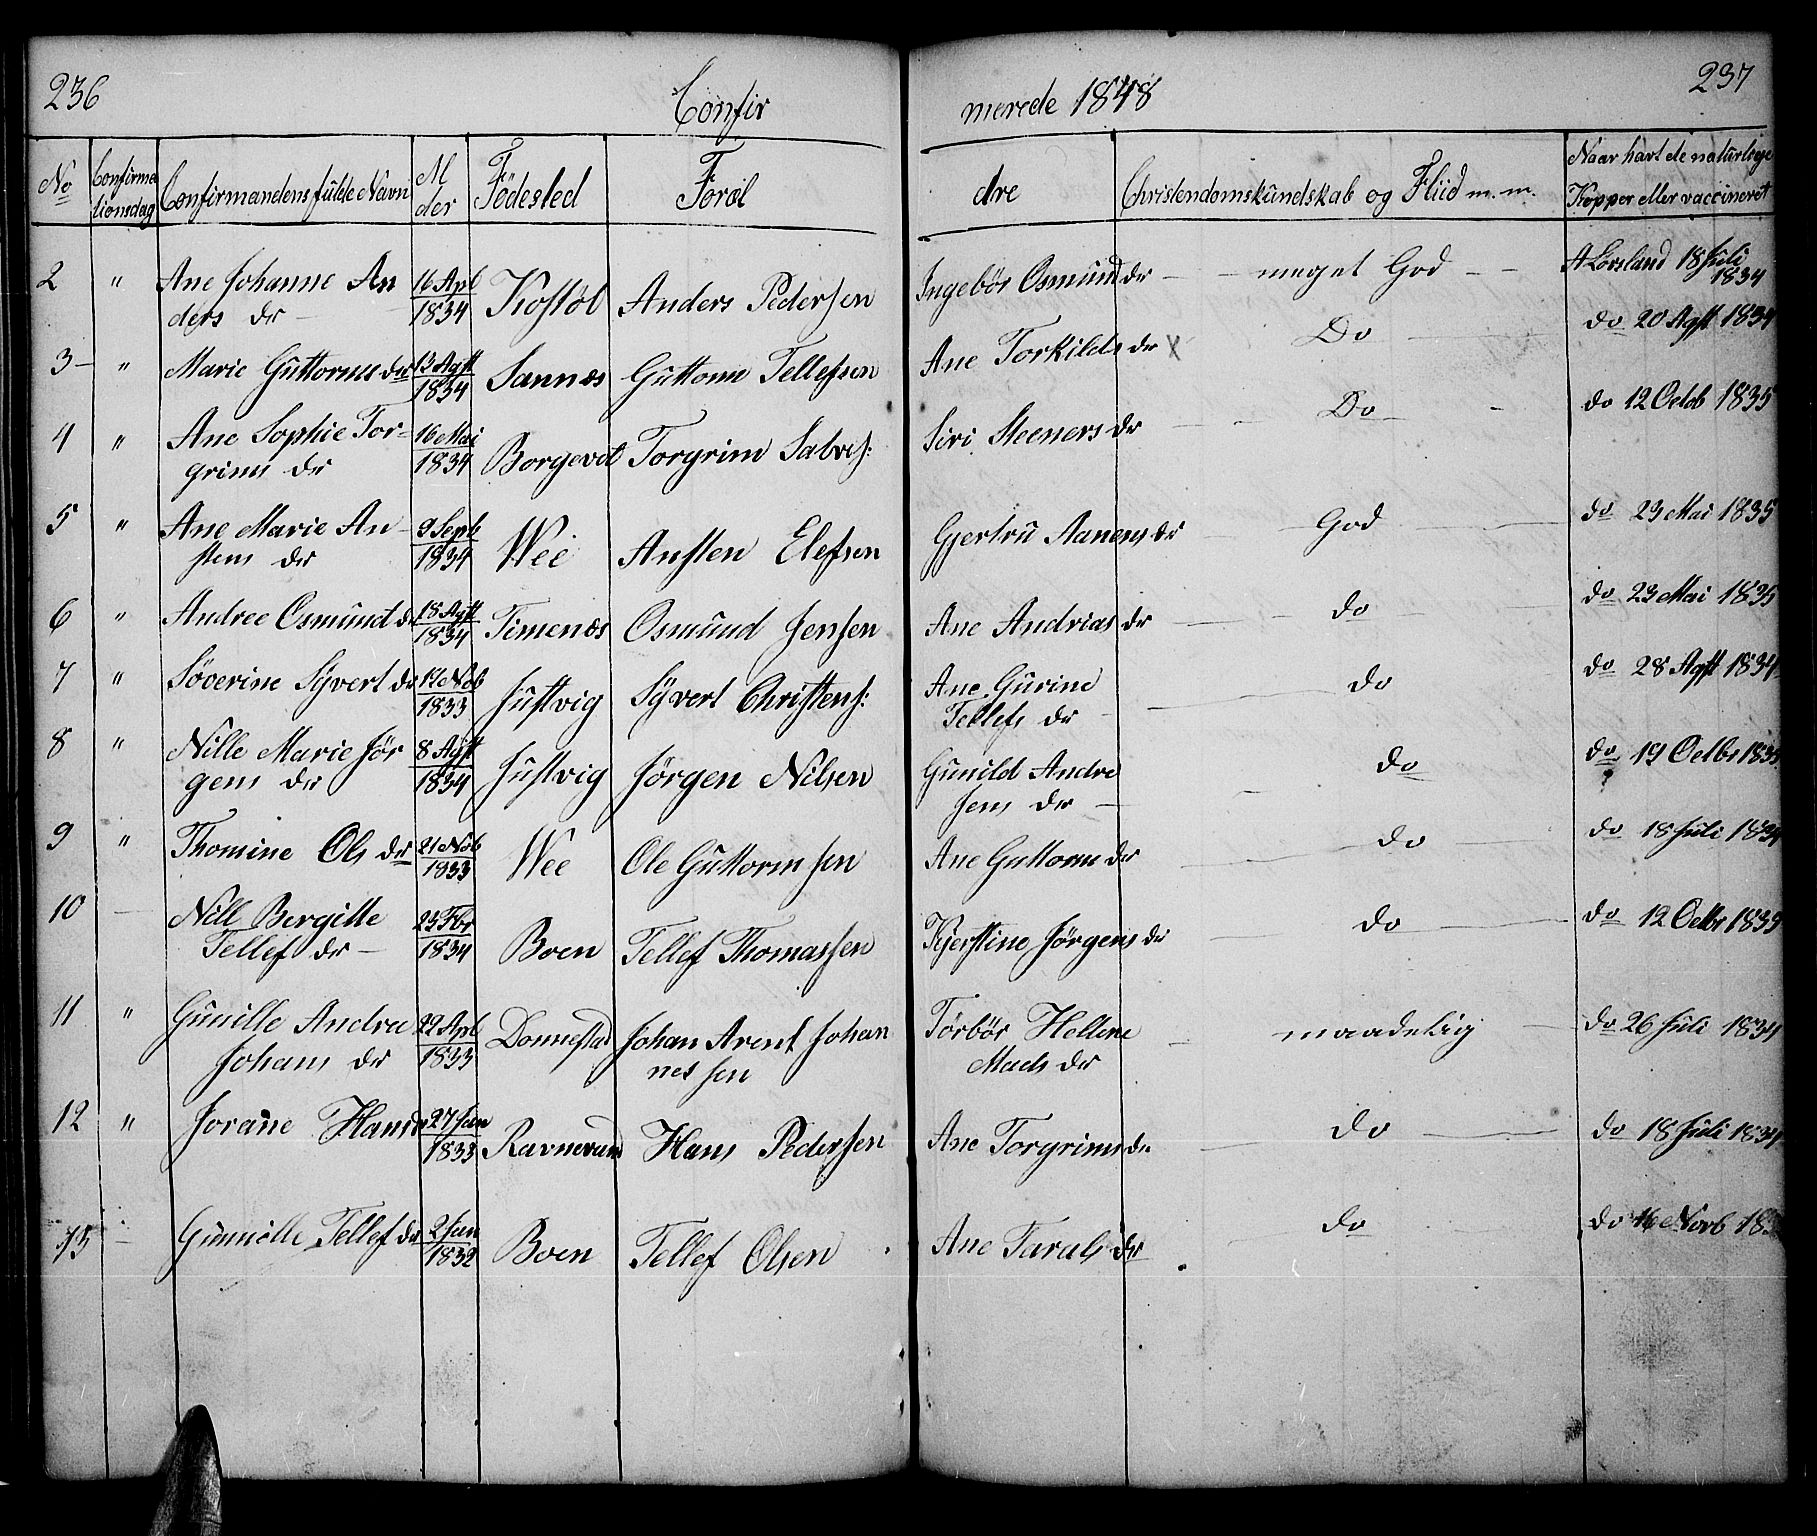 236
Confir
merede 1848
237
No
Confirma
tionsdag
Confirmandens fulde Navn
Al
der
Födested
Foræl
dre
Christendomskundskab og Fliid m. m.
Naar havt de naturlige
Kopper eller vaccineret
2 " Ane Johanne An 16 Apl Kostöl Anders Pedersen Ingebör Osmund dr — meget God — A Lorsland 18 Juli
ders dr — 1834 1834
3 — " Marie Guttorms dr 13 Agst Sannæs Guttorm Tellefsen Ane Torkilds dr x Do — do 20 Agst 1834
1834
4 " Ane Sophie Tor- 16 Mai Borgevet Torgrim Salves: Siri Steeners dr — Do — do 12 Octob 1835
grims dr 1834
5 " Ane Marie An- 9 Septb Wee Ansten Elefsen Gjertru Aanens dr — God — do 23 Mai 1835
stens dr 1834
6 " Andree Osmund dr 18 Agst Timenæs Osmund Jensen Ane Andrias dr — do — do 23 Mai 1835
1834
7 " Söverine Syvert dr 17 Nob Justvig Syvert Christens: Ane Gurine — do — do 28 Agst 1834
1833 Tellefs dr
8 " Nille Marie Jör 8 Agst Justvig Jörgen Nilsen Gunild Andre — do — do 19 Octbr 1835
gens dr 1834 sens dr —
9 " Thomine Ols dr 21 Nob Wee Ole Guttormsen Ane Guttorms dr — do — do 18 Juli 1834
1833
10 — Nill Bergitte 23 Fbr Boen Tellef Thomassen Kjerstine Jörgens dr — do — do 12 Octbr 1835
Tellef dr — 1834
11 " Gunille Andrea 29 Apl Donnestad Johan Arent Johan Törbör Hellene — maadelig — do 26 Juli 1834
Johans dr 1833 nessen Mads dr
12 " Jorane Hans dr 27 Jan Ravnevand Hans Pedersen Ane Torgrims dr — do — do 18 Juli 1834
1833
13 — Gunnille Tellef dr 2 Jan Boen Tellef Olsen Ane Tarals dr do — do 16 Novb 183
1832